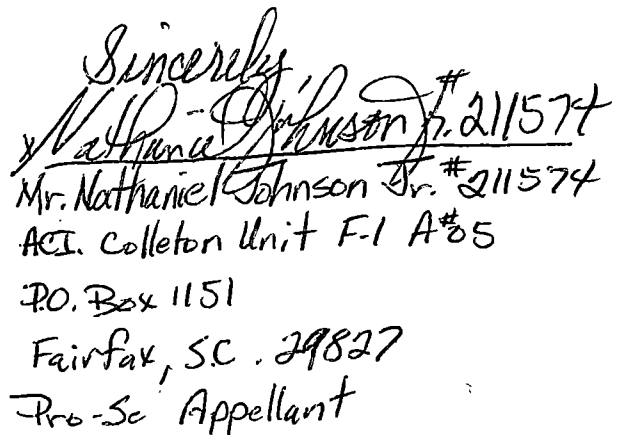 Sincerely
x Nathaniel Johnson Jr. #211574
Mr. Nathaniel Johnson Jr. #211574
ACI. Colleton Unit F-1 A#05
P.O. Box 1151
Fairfax, S.C. 29827
Pro-Se Appellant